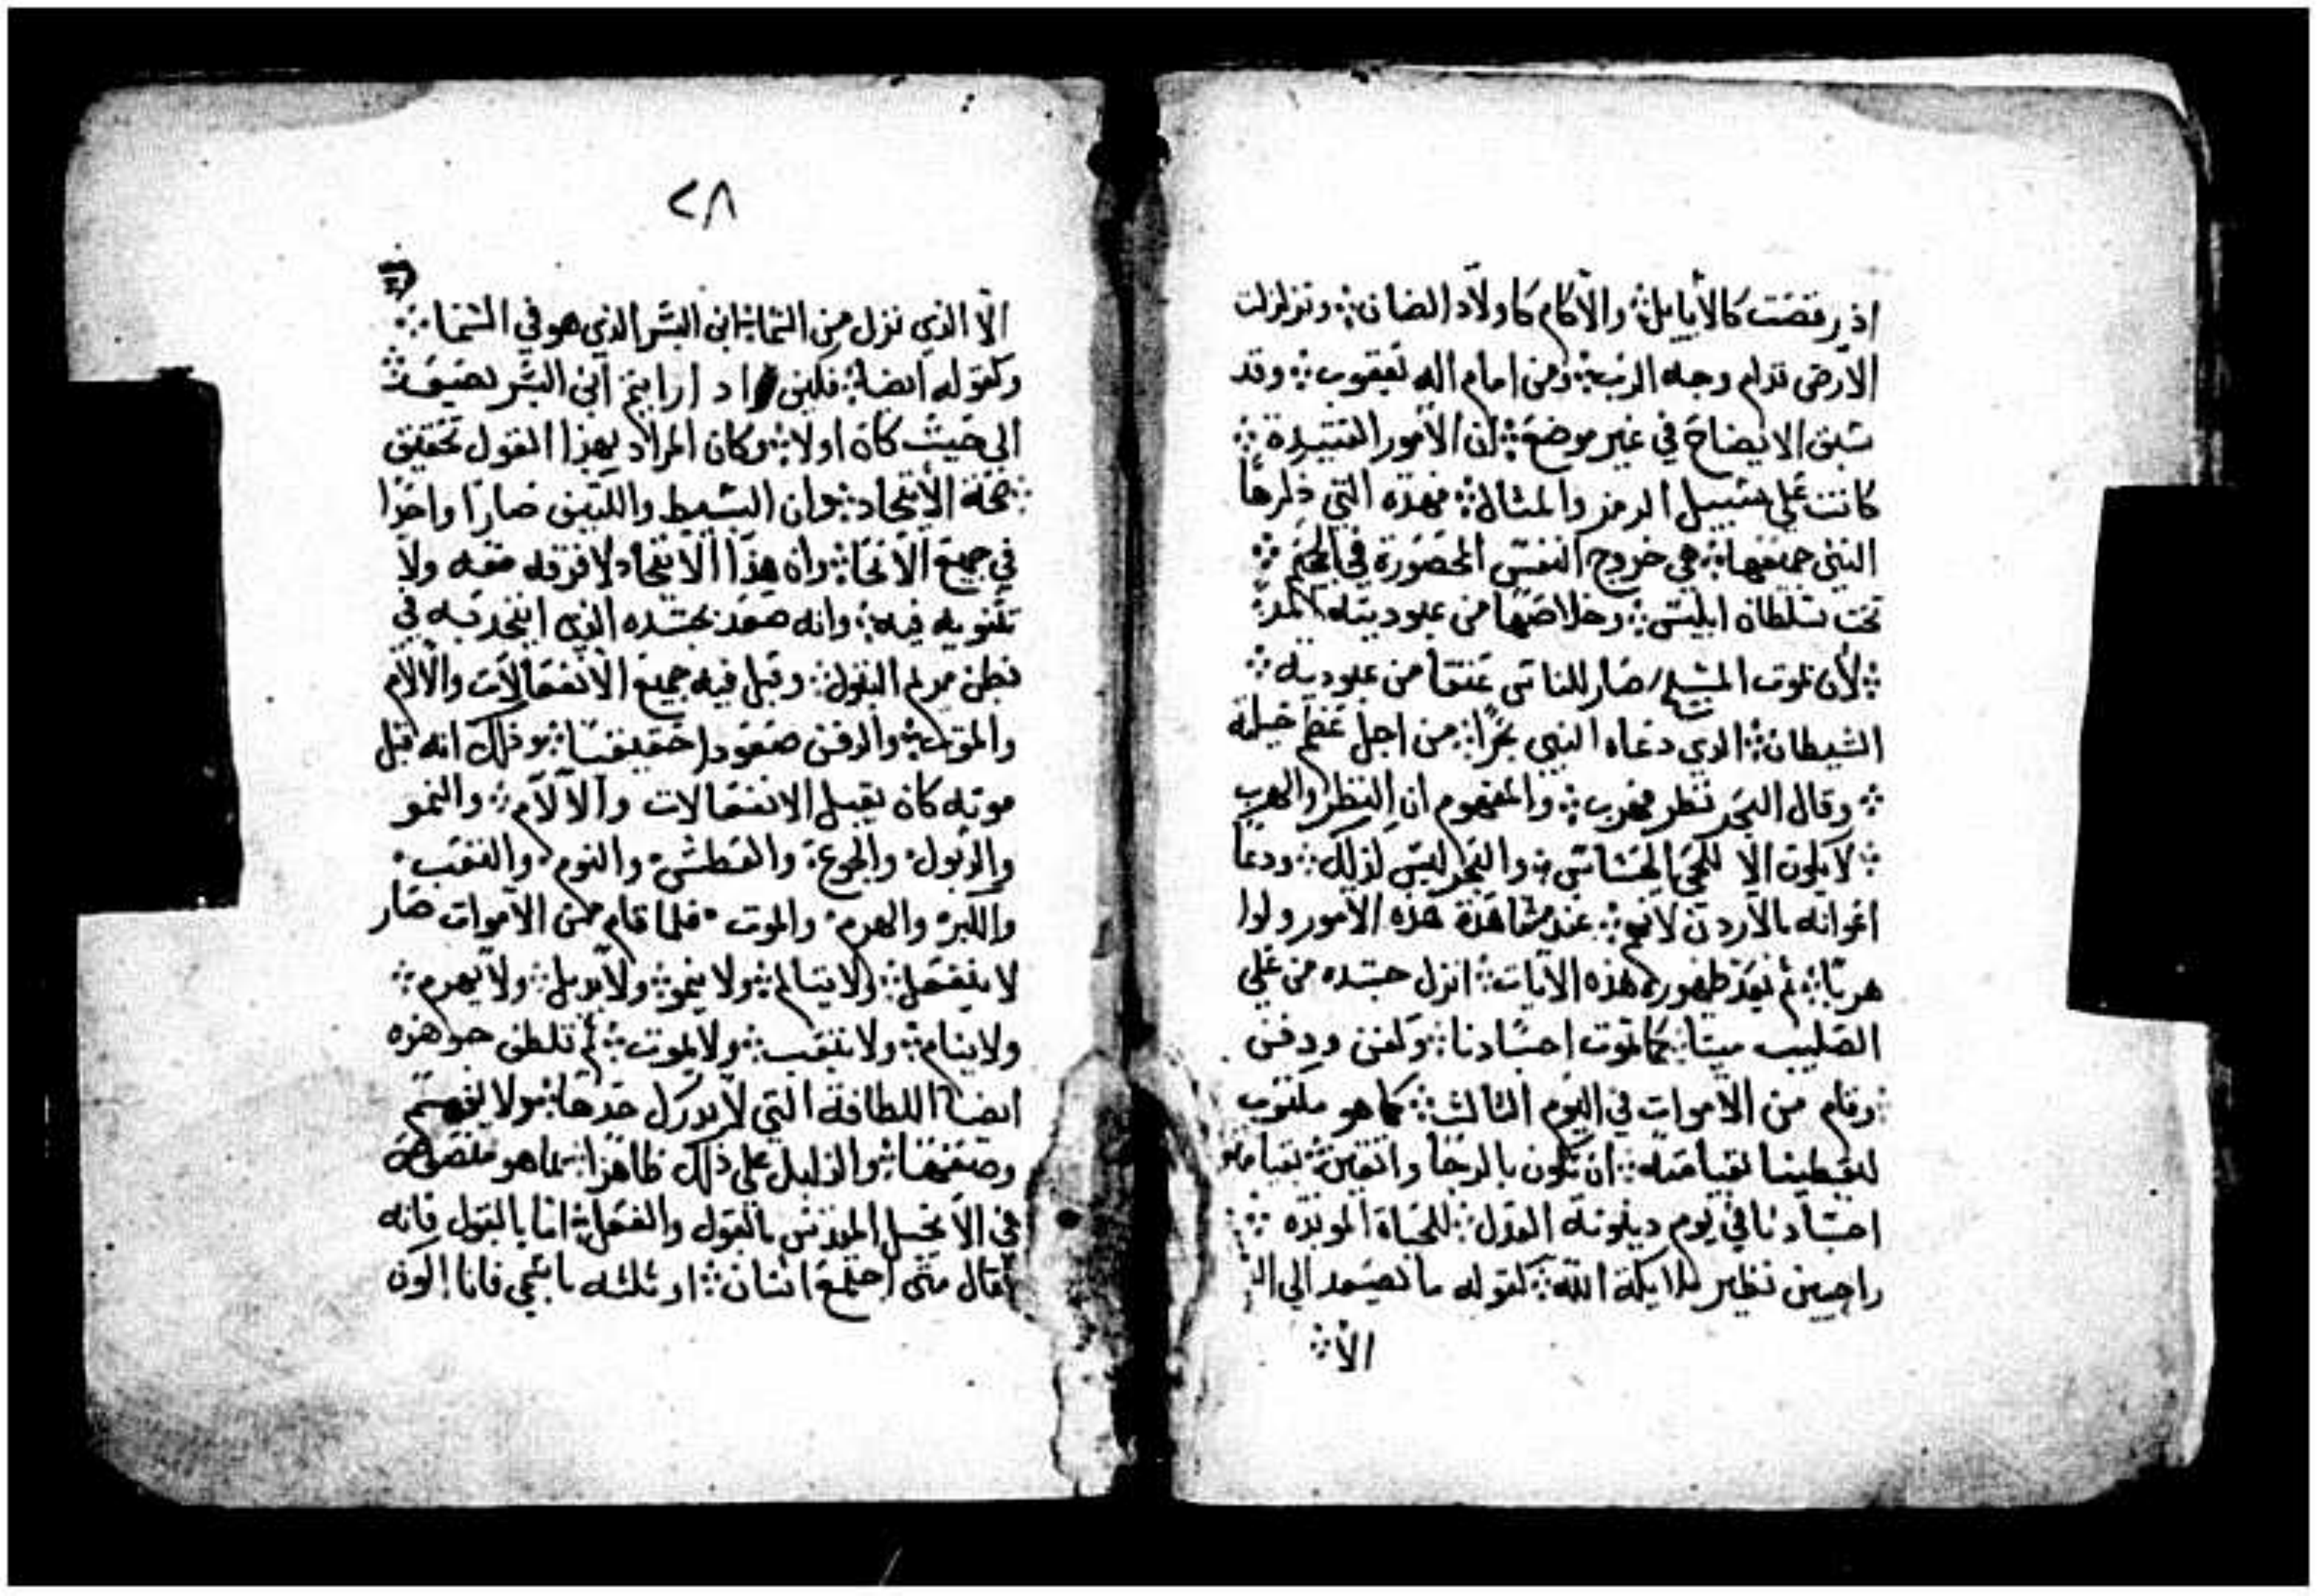 اذ رقصت كالأيايل ⁘ والآكام كاولاد الضان ⁘ وتزلزلت
الارض قدام وجه الرب ⁘ ومن امام اله يعقوب ⁘ وقد
سبق الايضاح في غير موضع ⁘ ان الأمور العتيدة ⁘
كانت على سبيل الرمز والمثال ⁘ فهذه التي ذكرها
النبي جميعها ⁘ هي خروج النفس المحصورة في الجحيم ⁘
تحت سلطان ابليس ⁘ وخلاصها من عبوديته المرة
⁘ لأن بموت المسيح صار للناس عتقا من عبودية ⁘
الشيطان ⁘ الذي دعاه النبي بحرًا ⁘ من اجل عظم حيله
⁘ وقال البحر نظر فهرب ⁘ والمفهوم ان النظر والهرب
⁘ لا يكون الا للحي الحساس ⁘ والبحر ليس كذلك ⁘ ودعا
اعوانه بالأردن لانهم ⁘ عند مشاهدة هذه الأمور ولوا
هربًا ⁘ ثم بعد ظهور هذه الآيات ⁘ انزل جسده من على
الصليب ميتا ⁘ كما تموت اجسادنا ⁘ وكفن ودفن
⁘ وقام من الأموات في اليوم الثالث ⁘ كما هو مكتوب
ليعطينا بقيامته ⁘ ان نكون بالرجا واثقين ⁘ بقيامة
اجسادنا في يوم دينونة العدل ⁘ للحياة الموبده ⁘
راجيين نظير ملايكة الله ⁘ كقوله ما صعد الى
الا ⁘
٢٨
الّا الذي نزل من السما ⁘ ابن البشر الذي هو في السما ⁘
وكقوله ايضا ⁘ فكيف اد ارايتم ابن البشر يصعد ⁘
الى حيث كان اولا ⁘ وكان المراد بهذا القول تحقيق
⁘ صحة الأتحاد ⁘ وان البسيط والكثيف صارا واحدًا
في جميع الأنحا ⁘ وان هذا الاتحاد لا فرقه معه ولا
تثنويه فيه ⁘ وانه صعد بجسده الذي اتحد به في
بطن مريم البتول ⁘ وقبل فيه جميع الانفعالات والآلام
والموت ⁘ والدفن صعودا حقيقيًا ⁘ وذلك انه قبل
موته كان يقبل الانفعالات والآلام ⁘ والنمو
والدبول ⁘ والجوع ⁘ والعطش ⁘ والنوم ⁘ والتعب ⁘
والكبر ⁘ والهرم ⁘ والموت ⁘ فلما قام من الأموات صار
لا ينفعل ⁘ ولا يتالم ⁘ ولا ينمو ⁘ ولا يدبل ⁘ ولا يهرم ⁘
ولا ينام ⁘ ولا يتعب ⁘ ولا يموت ⁘ ثم تلطف جوهره
ايضا اللطافة التي لا يدرك حدها ⁘ ولا يفهم
وصفها ⁘ والدليل على ذلك ظاهرًا ⁘ مما هو
في الأنجيل المقدس بالقول والفعل ⁘ اما بالقول فانه
قال متى اجتمع اثنان ⁘ او ثلثه باسمي فانا اكون